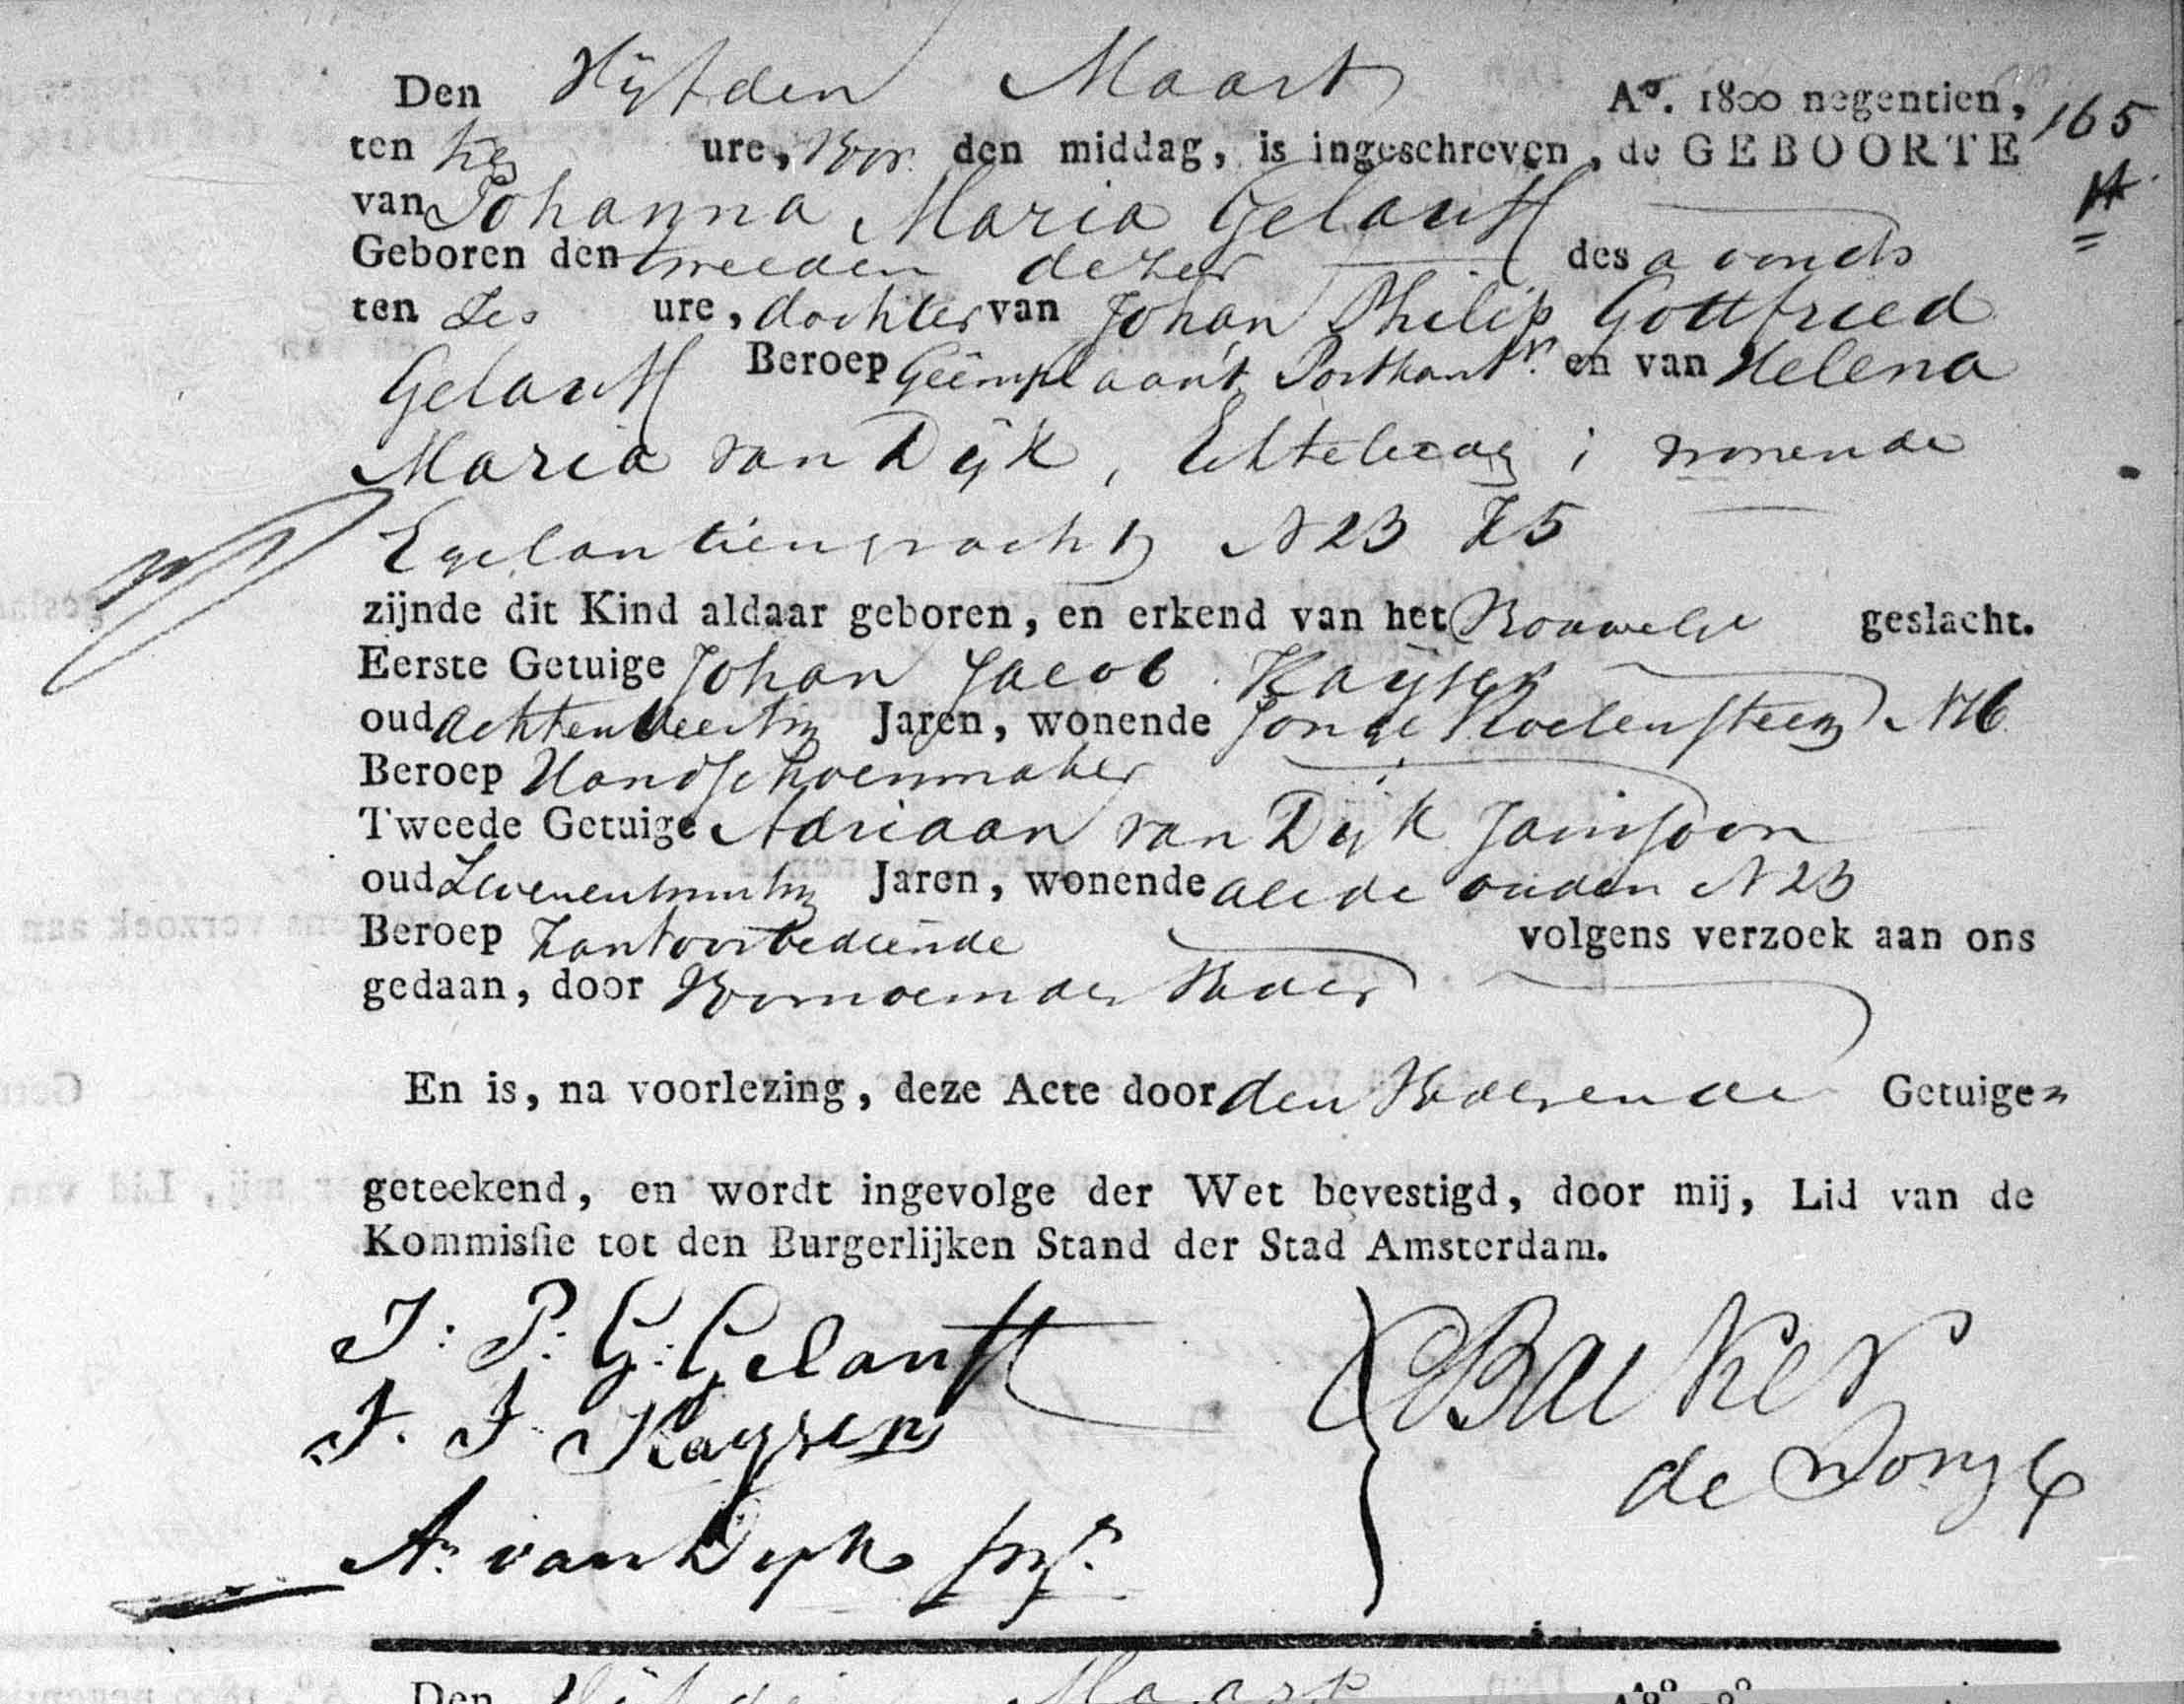 Den Vijfden Maart Ao. 1800 negentien,
165
ten tien ure, Voor den middag, is ingeschreven, de GEBOORTE
van Johanna Maria Gelauff
Geboren den tweeden dezer des avonds
ten Zes ure, dochter van Johan Philip Gottfried
Gelauff Beroep Geëmpl aan't Postkantr. en van Helena
Maria van Dijk, Echtelieden; wonende
Egelantiersgracht N 23 K 5
zijnde dit Kind aldaar geboren, en erkend van het Vrouwelijk geslacht.
Eerste Getuige Johan Jacob Kayser
oud achtenveertig Jaren, wonende Jonge Roelensteeg N
Beroep Handschoenmaker
Tweede Getuige Adriaan van Dijk Janszoon
oud Zevenentwintig Jaren, wonende als de ouders N 23
Beroep Kantoorbediende volgens verzoek aan ons
gedaan, door Voornoemden Vader
En is, na voorlezing, deze Acte door den Vader en de Getuigen
geteekend, en wordt ingevolge der Wet bevestigd, door mij, Lid van de
Kommissie tot den Burgerlijken Stand der Stad Amsterdam.
J: P: G: Gelauff
J. J. Kayser
Bakker
de
A. van Dyk
Den Vijfden Maart Ao.